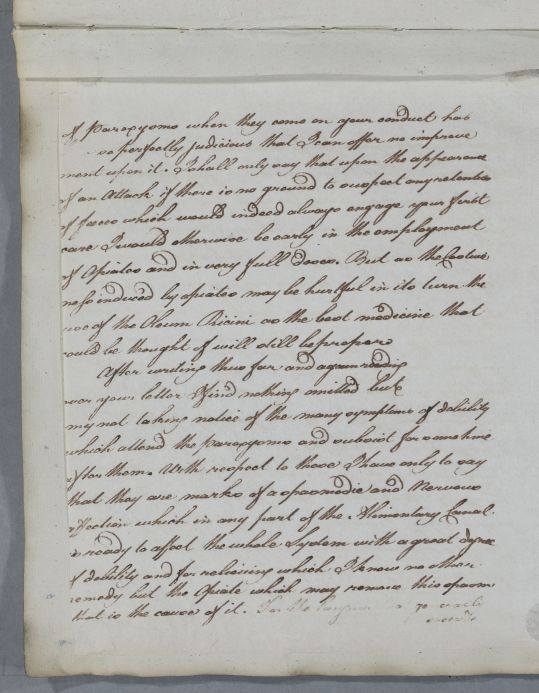 of Paroxysms when they come on your conduct has
so perfectly judicious that I can offer no improve
ment upon it. I shall only say that upon the appearance
of an Attack if there is no ground to suspect any retention
of faeces which would indeed always engage your first
care I would otherwise be early in the employment
of Opiates and in very full doses. But as the Costive
ness induced by opiates may be hurtful in its turn the
use of the Oleum Ricini as the best medicine that
could be thought of will still be proper
After writing thus far and again reading
over your letter I find nothing omitted but
my not taking notice of the many symptoms of debility
which attend the paroxysms and subsist for sometime
after them. With respect to these I have only to say
that they are marks of a spasmodic and Nervous
affection which in any part of the Alimentary Canal
is ready to affect the whole System with a great degree
of debility and for relieving which I know no other
remedy but the Opiate which may remove this spasm
that is the cause of it. For the